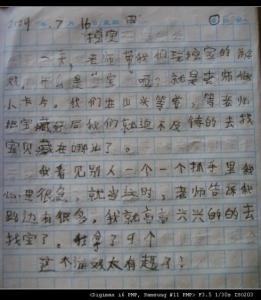 2024年7月16日
挖宝
一天，老师带我们玩挖宝的游
戏，什么是宝呢？就是老师做
人卡片，我们坐山头等宝，等老师
把宝藏好后我们就迫不及待的去找
宝贝藏在哪儿了。
我看见别人一个一个抓手里我
心里很急，就当这时，老师告诉我
路边有很多，我就高高兴兴的的去
找宝了，我拿了9个
这个游戏太有趣了！
<Digimax i6 PMP, Samsung #11 PMP> F3.5 1/30s ISO203